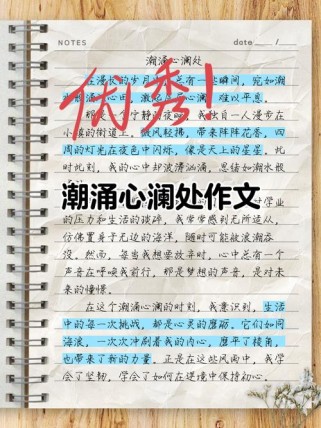 NOTES
date
潮涌心澜处
在漫长的岁月
有一些瞬间，宛如潮
难以平息。
优秀！
我独自一人漫步在
小镇的街道上。微风轻拂，带来阵阵花香，四
周的灯光在夜色中闪烁，像是天上的星星。此
时此刻，我的心中却波涛汹涌，思绪如潮水般
潮涌心澜处作文
学业
的压力和生活的琐碎，我常常感到无所适从，
仿佛置身于无边的海洋，随时可能被浪潮吞
没。然而，每当我想要放弃时，心中总有一个
声音在呼唤我前行，那是梦想的声音，是对未
来的憧憬。
在这个潮涌心澜的时刻，我意识到，生活
中的每一次挑战，都是心灵的磨砺。它们如同
海浪，一次次冲刷着我的内心，磨平了棱角，
也带来了新的力量。正是在这些风雨中，我学
会了坚韧，学会了如何在逆境中保持初心。